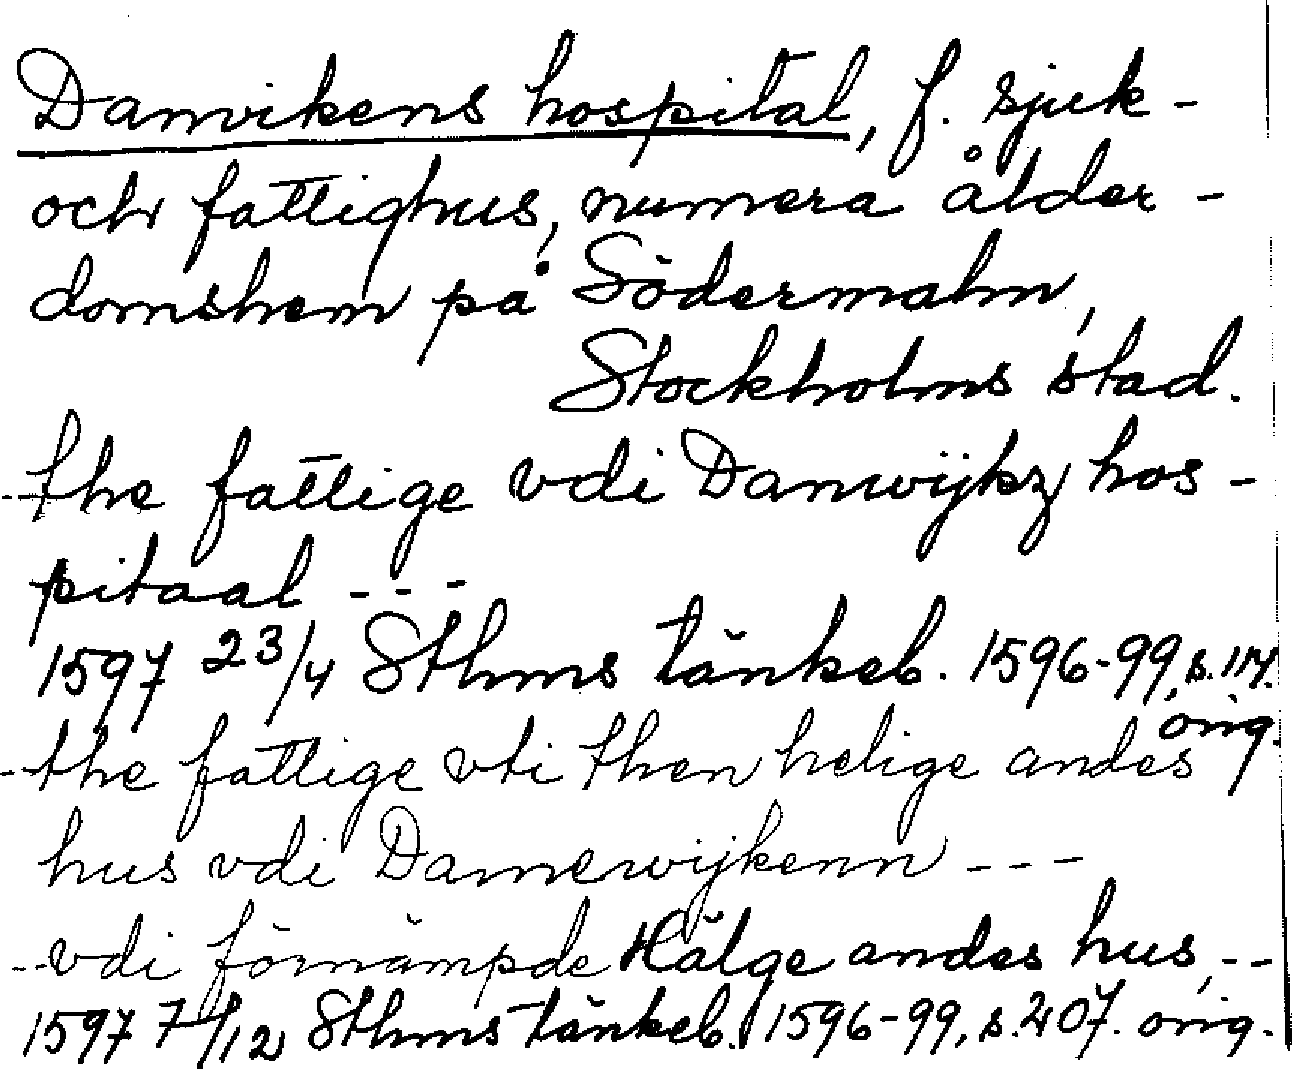 Danvikens hospital, f. sjuk-
och fattighus, numera ålder-
domshem på Södermalm,
Stockholms stad.
--the fattige vdi Danwijkz hos-
pitaal ---
1597 23/4 Sthms tänkeb. 1596-99, s. 114.
orig.
--the fattige vti then helige andes
hus vdi Damewijkenn ---
--vdi förnämpde Hälge andes hus, --
1597 7/12 Sthms tänkeb. 1596-99, s. 207. orig.